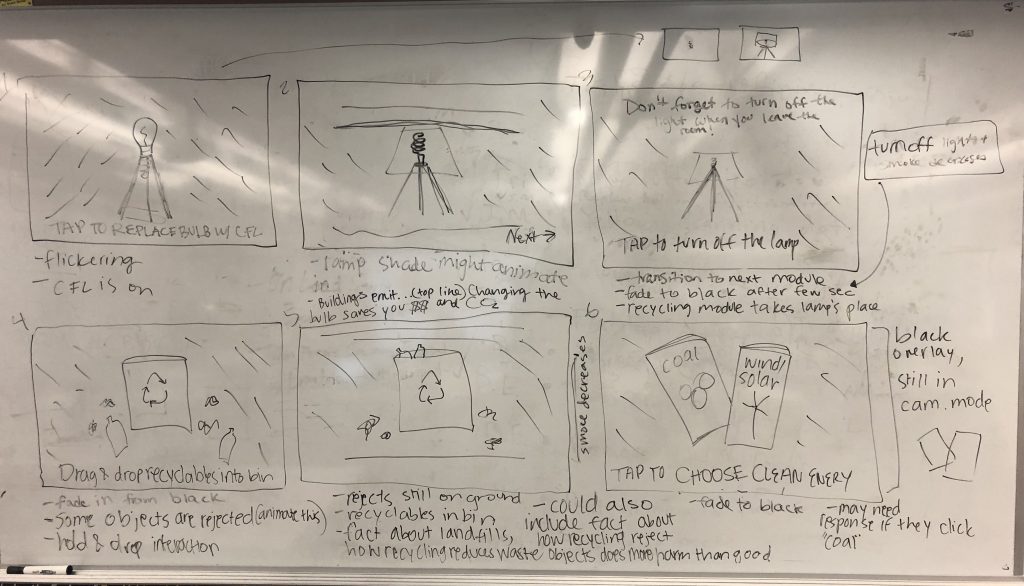 1
TAP TO REPLACE BULB W/ CFL
- flickering
- CFL is on
2
Next →
- lamp shade might animate
in
- Buildings emit... (top line) Changing the
bulb saves you $$ and CO2
3
Don't forget to turn off the
light when you leave the
room!
TAP to turn off the lamp
turn off lights +
smoke decreases
- transition to next module
- fade to black after few sec
- recycling module takes lamp's place
4
Drag & drop recyclables into bin
- fade in from black
- Some objects are rejected (animate this)
- hold & drop interaction
5
smoke decreases
- rejects still on ground
- recyclables in bin
- fact about landfills,
how recycling reduces waste
- could also
include fact about
how recycling reject
objects does more harm than good
6
coal
wind/
solar
TAP TO CHOOSE CLEAN ENERY
- fade to black
black
overlay,
still in
cam. mode
- may need
response if they click
"coal"